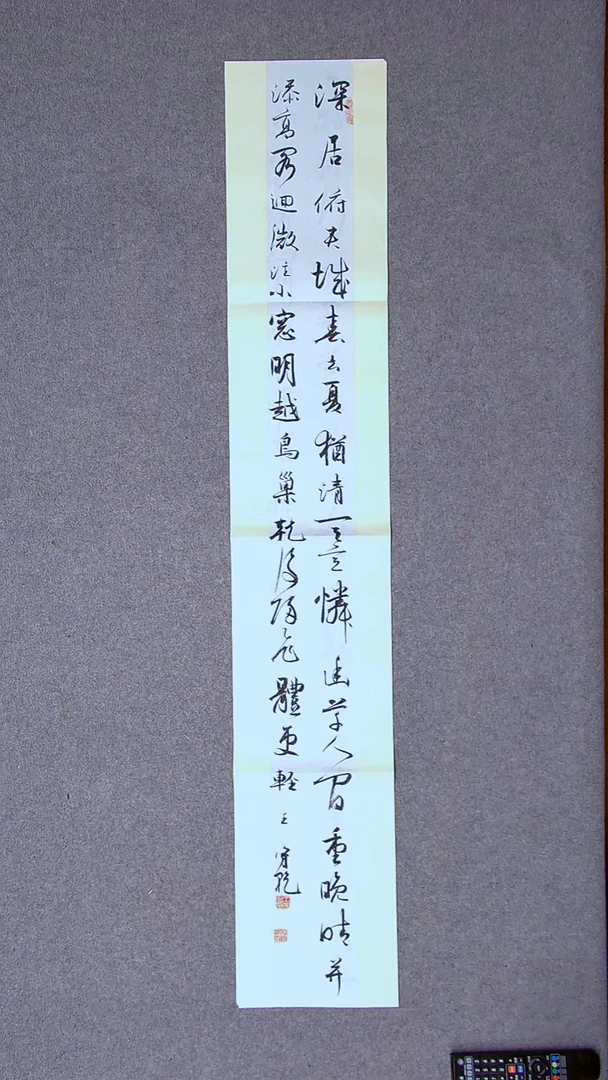 深居俯夾城春去夏猶清天意憐幽草人間重晚晴并
添高閣迥微注小窓明越鳥巢乾後歸飛體更輕